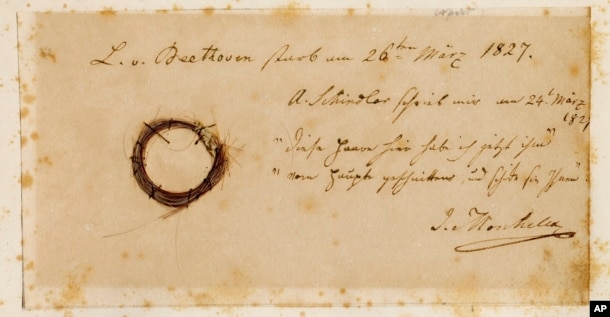 L. v. Beethoven starb am 26ten März 1827.
A. Schindler schrieb mir am 24t März
1827
"diese Haare hier habe ich jetzt ihm"
"vom Haupte geschnitten, und schicke sie Ihnen".
I. Moscheles
AP